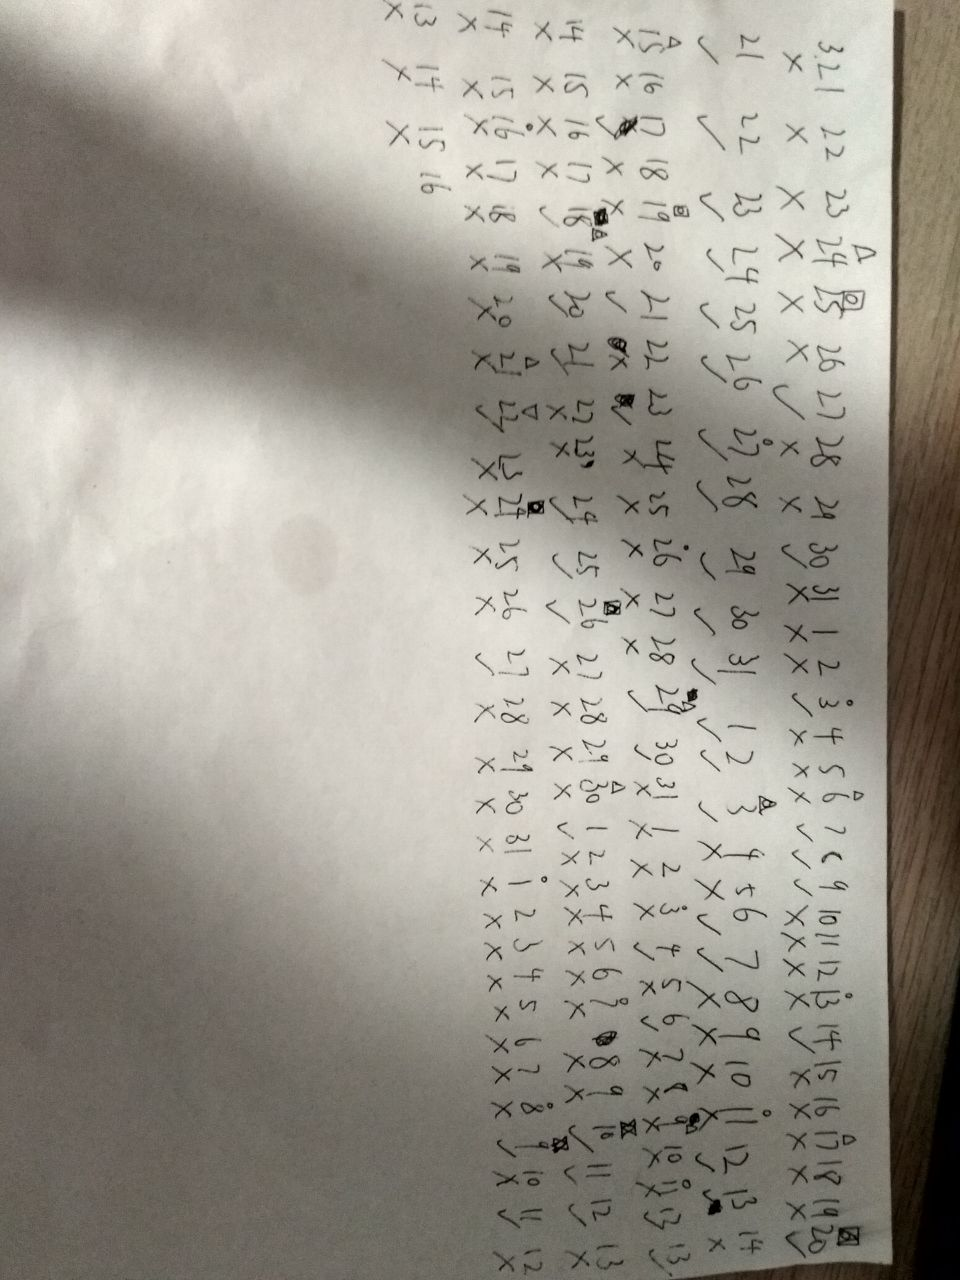 3.21 22 23 24 25 26 27 28 29 30 31 1 2 3 4 5 6 7 8 9 10 11 12 13 14 15 16 17 18 19 20
× × × × × × ✓ × × ✓ × × × ✓ × × × ✓ ✓ ✓ × × × × ✓ × × × × × ✓
21 22 23 24 25 26 27 28 29 30 31 1 2 3 4 5 6 7 8 9 10 11 12 13 14
✓ ✓ ✓ ✓ ✓ ✓ ✓ ✓ ✓ ✓ ✓ ✓ ✓ ✓ × × ✓ ✓ × × × × ✓ ✓ ×
15 16 17 18 19 20 21 22 23 24 25 26 27 28 29 30 31 1 2 3 4 5 6 7 8 9 10 11 13 13
× × ✓ × × × ✓ × ✓ × × × × × ✓ ✓ × × × × ✓ × ✓ × × × × × ✓ ✓
14 15 16 17 18 19 20 21 22 23 24 25 26 27 28 29 30 1 2 3 4 5 6 7 8 9 10 11 12 13
× × × × ✓ × ✓ ✓ × × ✓ ✓ ✓ × × × × ✓ × × × × × × × × ✓ ✓ ✓ ×
14 15 16 17 18 19 20 21 22 23 24 25 26 27 28 29 30 31 1 2 3 4 5 6 7 8 9 10 11 12
× × × × × × × × ✓ × × × × ✓ × × × × × × × × × × × × ✓ × ✓ ×
13 14 15 16
× × ×